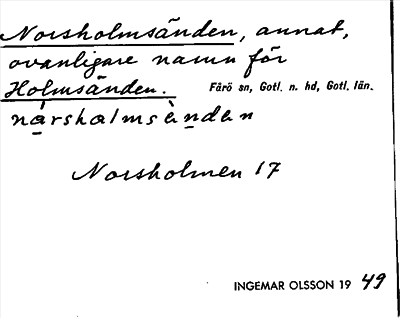 Norsholmsänden, annat,
ovanligare namn för
Holmsänden. Fårö sn, Gotl. n. hd, Gotl. län.
nàrshalmsèndan
Norsholmen 17
INGEMAR OLSSON 19 49